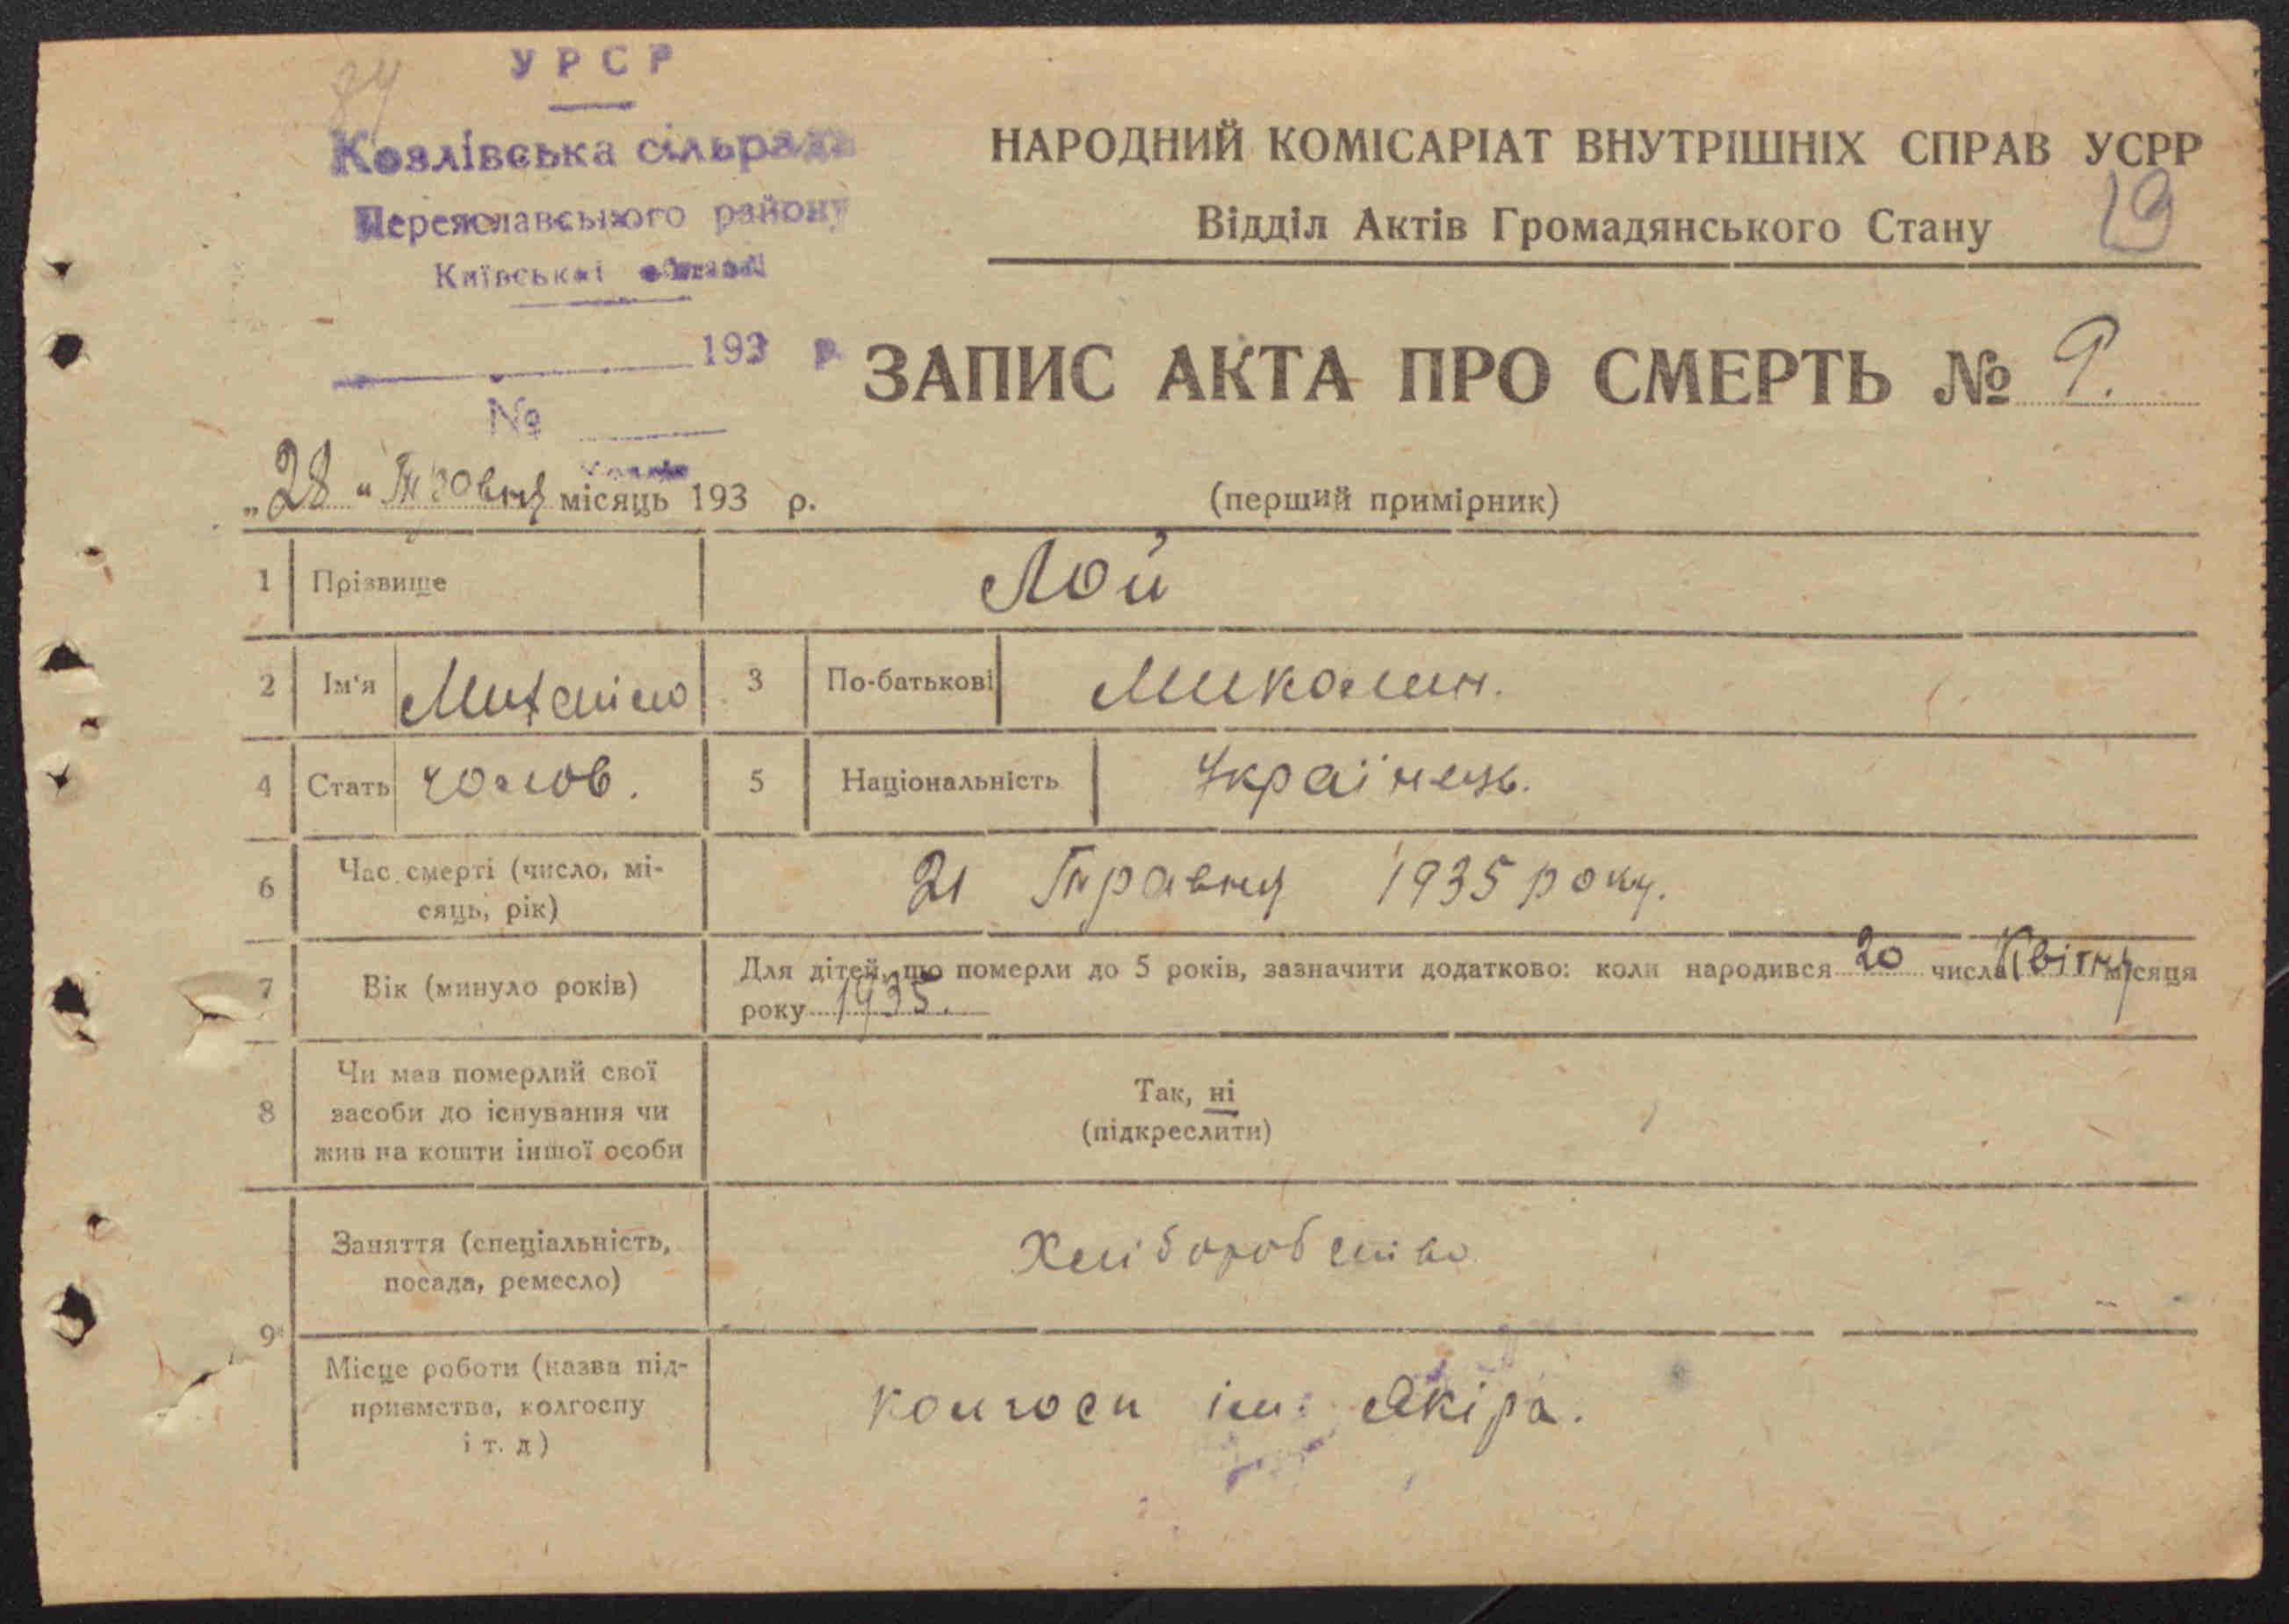 УРСР
Козлівська сільрада
Переяславського району
Київської області
193 р.
№
НАРОДНИЙ КОМІСАРІАТ ВНУТРІШНІХ СПРАВ УСРР
Відділ Актів Громадянського Стану
19
ЗАПИС АКТА ПРО СМЕРТЬ № 9.
„28" Травня місяць 193 р.
(перший примірник)
1 Прізвище Лой
2 Ім'я 3 По-батькові Миколин.
4 Стать чолов. 5 Національність Українець.
6 Час смерті (число, мі-
сяць, рік) 21 Травня 1935 року.
7 Вік (минуло років) Для дітей, що померли до 5 років, зазначити додатково: коли народився 20 числа Квітня місяця
року 1935.
8 Чи мав померлий свої
засоби до існування чи
жив на кошти іншої особи
Так, ні
(підкреслити)
9 Заняття (спеціальність,
посада, ремесло) Хліборобство
Місце роботи (назва під-
приємства, колгоспу
і т. д) колгосп ім. Якіра.